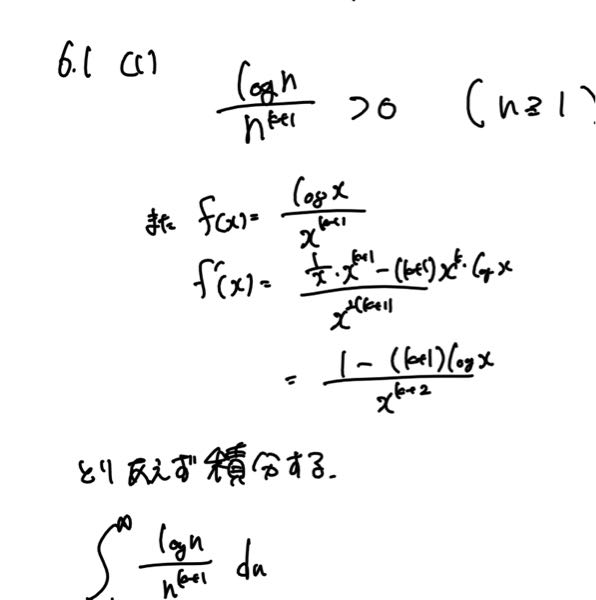 6.1 (1)
\frac{\log n}{n^{k+1}} > 0 (n ≧ 1)
また f(x) = \frac{\log x}{x^{k+1}}
f'(x) = \frac{\frac{1}{x} \cdot x^{k+1} - (k+1)x^k \cdot \log x}{x^{2(k+1)}}
= \frac{1 - (k+1)\log x}{x^{k+2}}
とりあえず積分する.
\int^{\infty} \frac{\log n}{n^{k+1}} dn